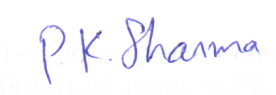 P.K. Sharma